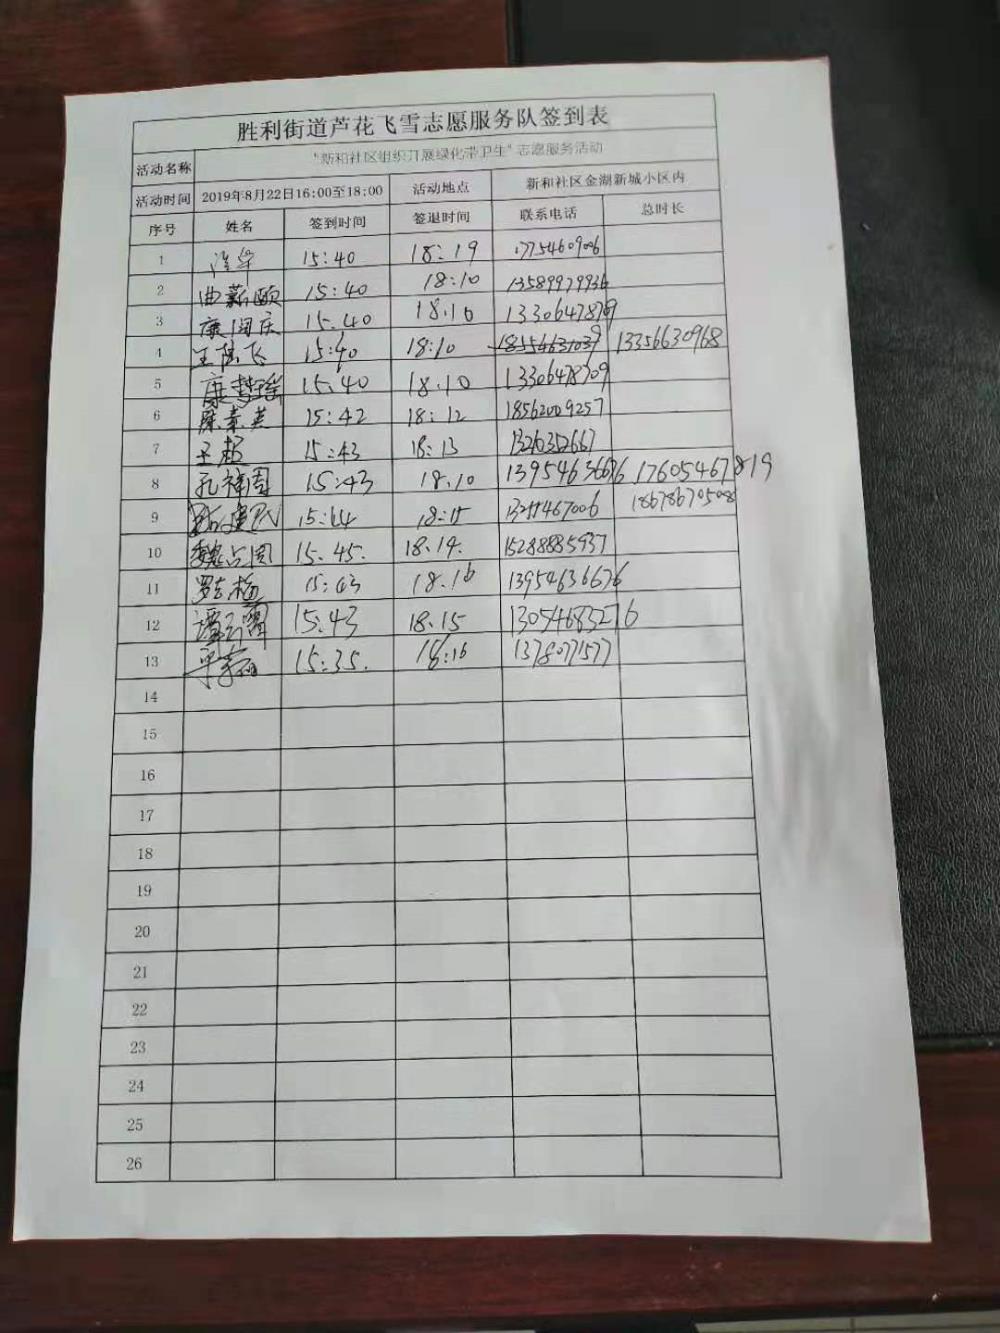 胜利街道芦花飞雪志愿服务队签到表
活动名称 "新和社区组织开展绿化带卫生"志愿服务活动
活动时间 2019年8月22日16:00至18:00 活动地点 新和社区金湖新城小区内
序号 姓名 签到时间 签退时间 联系电话 总时长
1 15:40 18:19 17754609006
2 曲薪颐 15:40 18:10 13589979936
3 康国庆 15:40 18:10
4 王陆飞 15:40 18:10 13356630968
5 康梦瑶 15:40 18:10 13306478709
6 15:42 18:12 18562009257
7 王超 15:43 18:13
8 孔祥国 15:43 18:10 13954636676 17605467819
9 18:15 18678670508
10 魏占国 15:45. 18:14. 15288885937
11 15:43 18:16 13954636676
12 15:43 18:15 13054683276
13 15:35. 18:16 13780771577
14
15
16
17
18
19
20
21
22
23
24
25
26